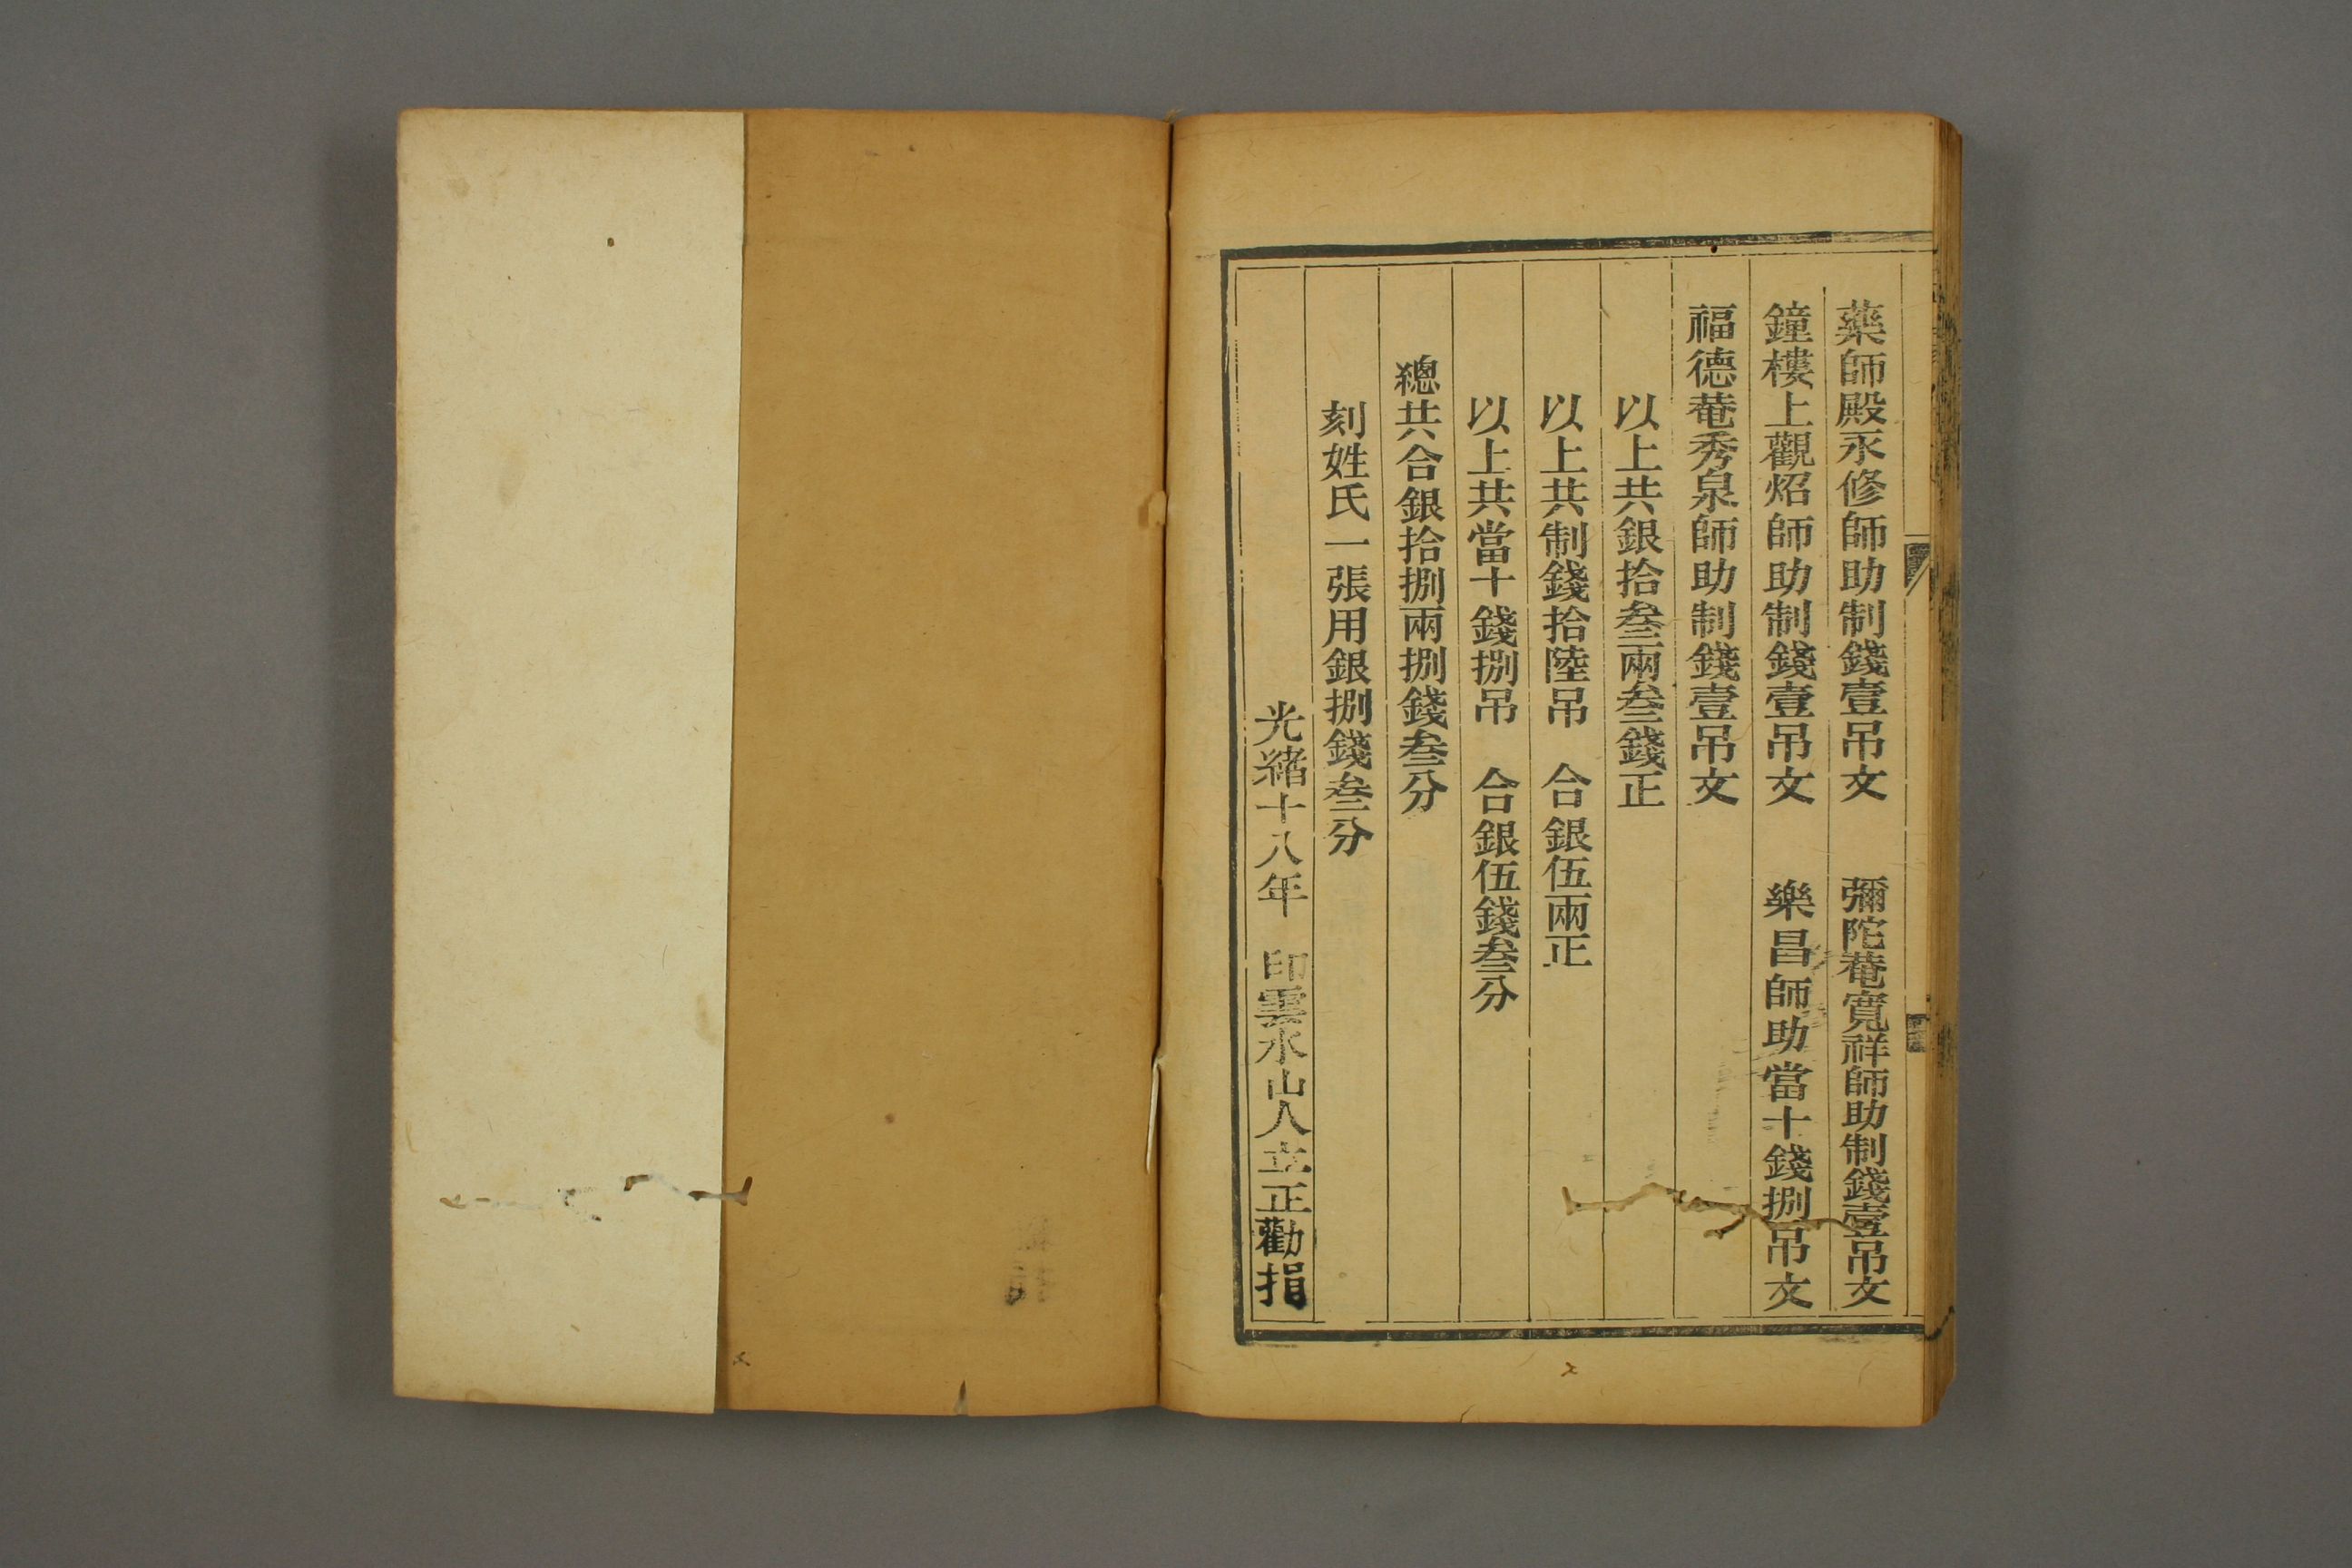 藥師殿永修師助制錢壹吊文　彌陀菴寬祥師助制錢壹吊文
鐘樓上觀炤師助制錢壹吊文　樂昌師助當十錢捌吊文
福德菴秀泉師助制錢壹吊文
以上共銀拾叁兩叁錢正
以上共制錢拾陸吊　合銀伍兩正
以上共當十錢捌吊　合銀伍錢叁分
總共合銀拾捌兩捌錢叁分
刻姓氏一張用銀捌錢叁分
光緒十八年　印雲水山人立正勸捐